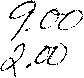 9.00
2.00